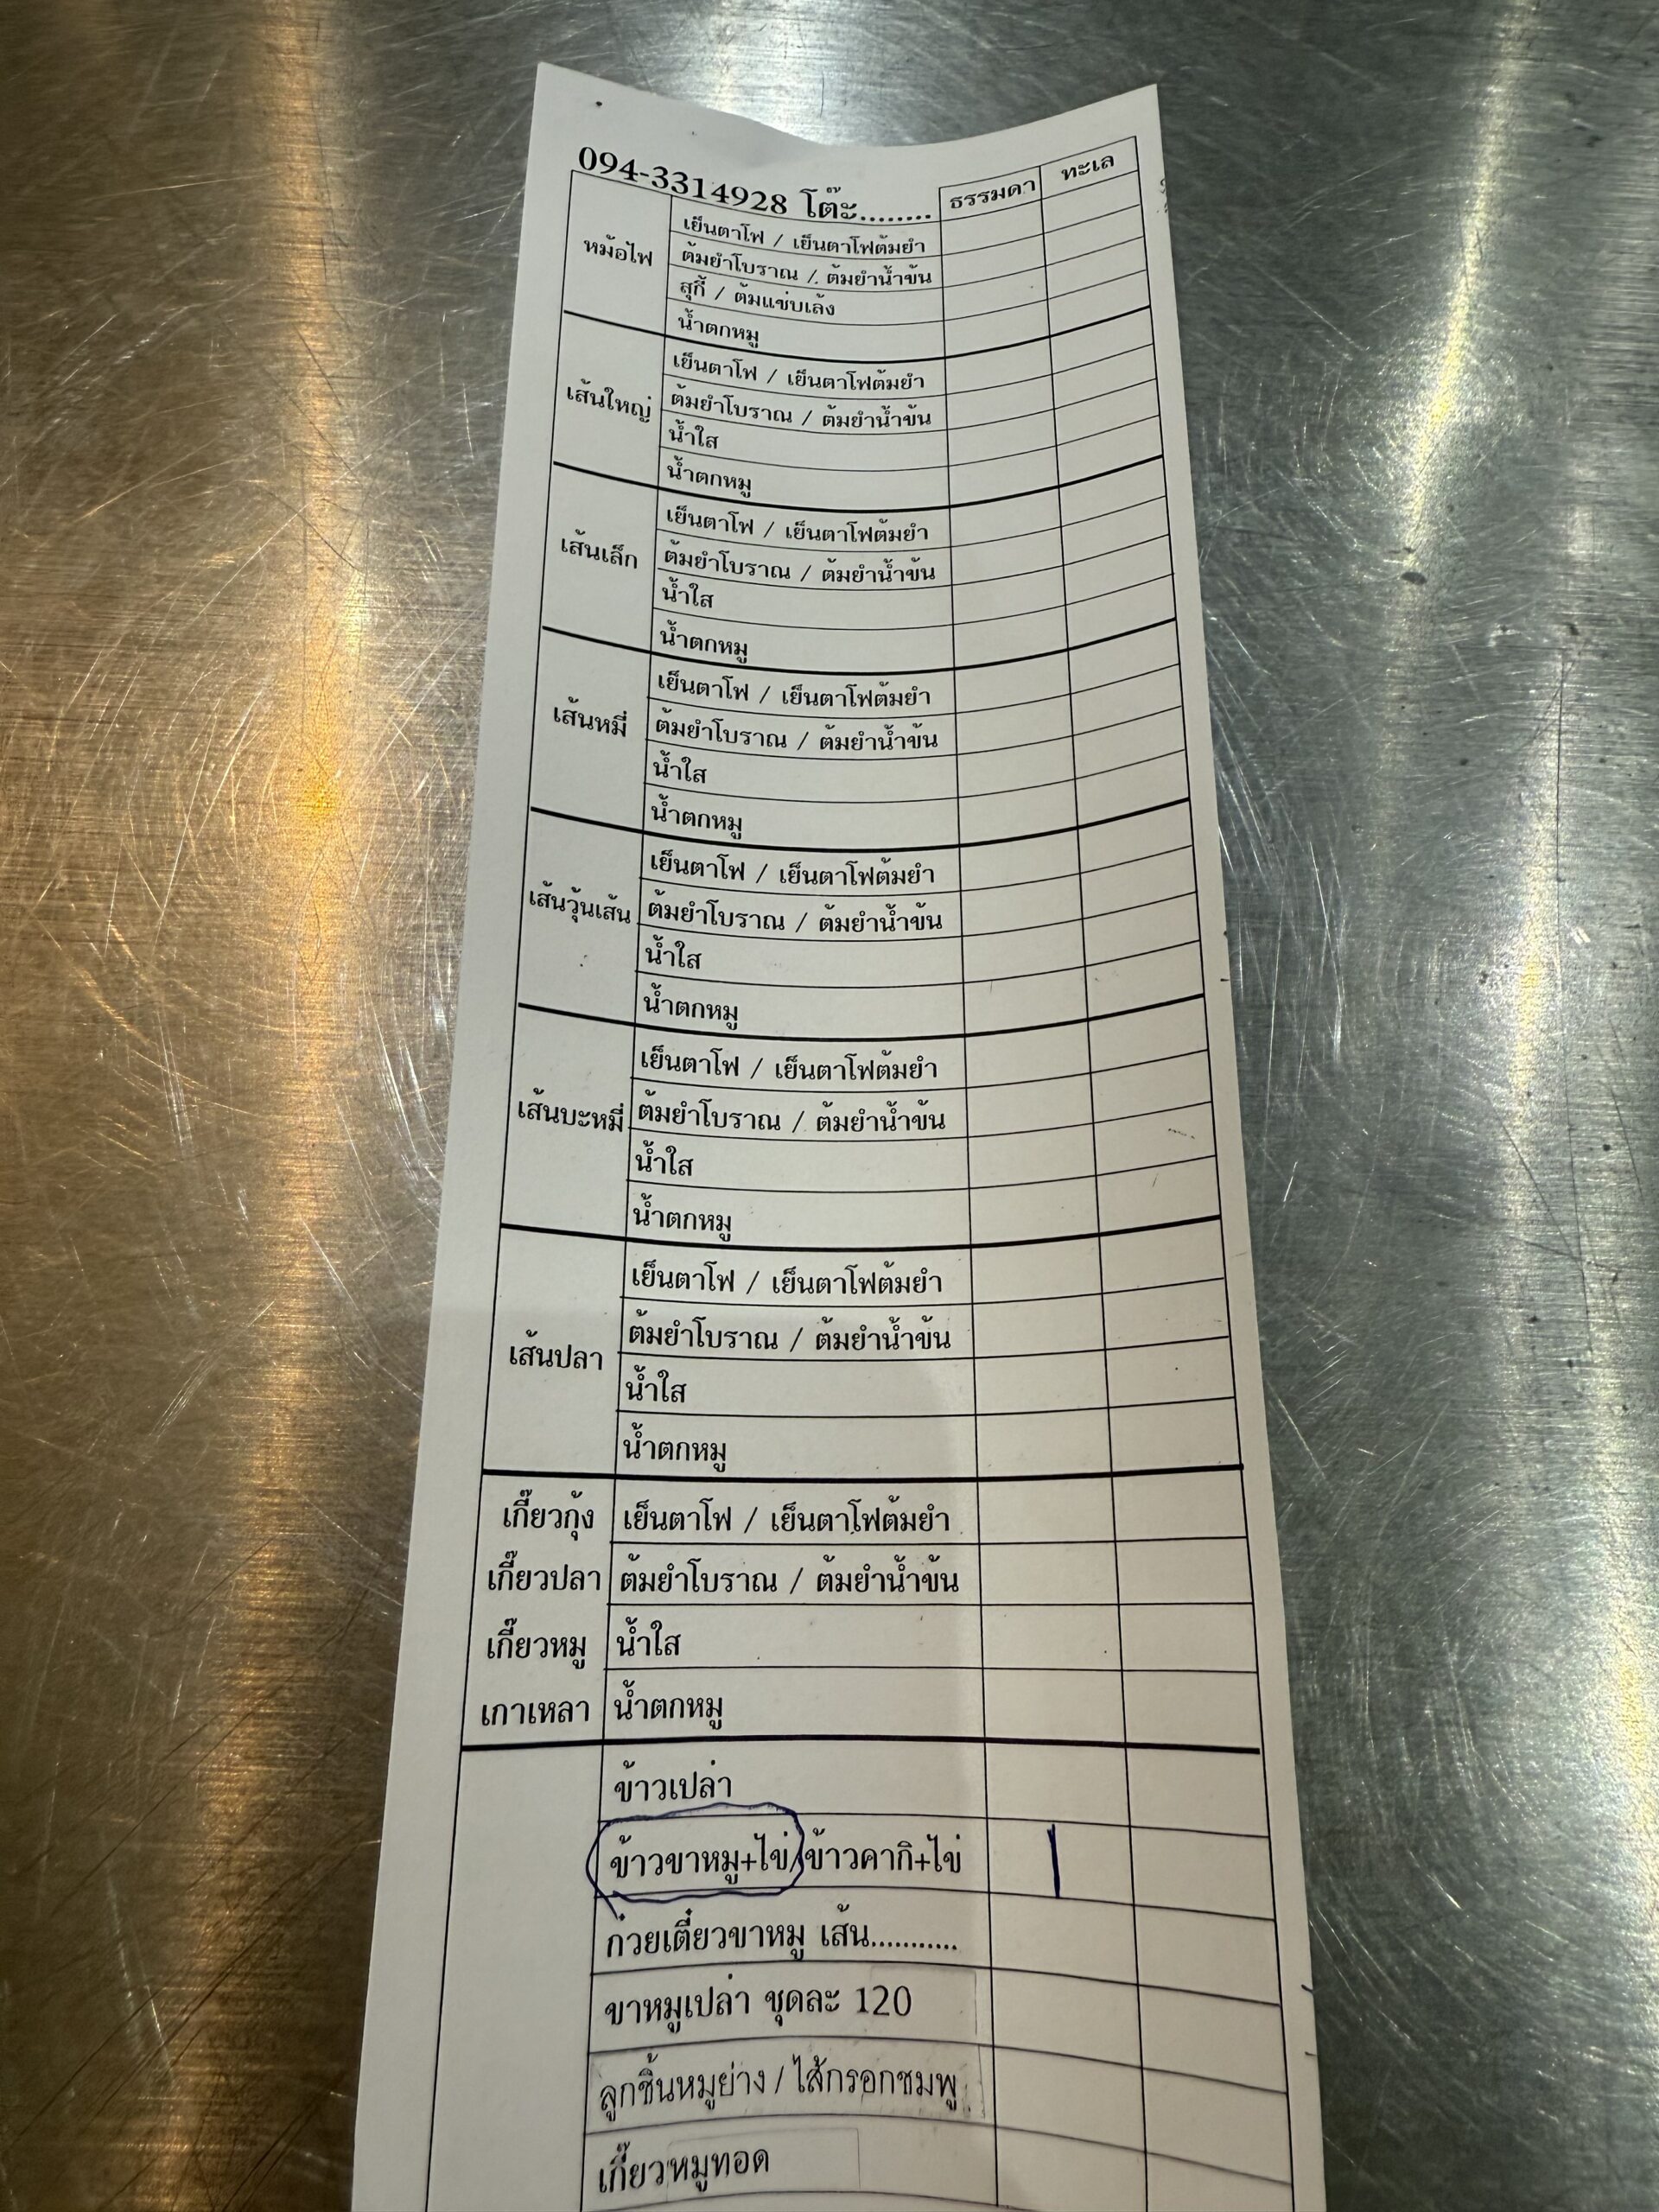 094-3314928 โต๊ะ........ ธรรมดา ทะเล
หม้อไฟ
เย็นตาโฟ / เย็นตาโฟต้มยำ
ต้มยำโบราณ / ต้มยำน้ำข้น
สุกี้ / ต้มแซ่บเล้ง
น้ำตกหมู
เส้นใหญ่
เย็นตาโฟ / เย็นตาโฟต้มยำ
ต้มยำโบราณ / ต้มยำน้ำข้น
น้ำใส
น้ำตกหมู
เส้นเล็ก
เย็นตาโฟ / เย็นตาโฟต้มยำ
ต้มยำโบราณ / ต้มยำน้ำข้น
น้ำใส
น้ำตกหมู
เส้นหมี่
เย็นตาโฟ / เย็นตาโฟต้มยำ
ต้มยำโบราณ / ต้มยำน้ำข้น
น้ำใส
น้ำตกหมู
เส้นวุ้นเส้น
เย็นตาโฟ / เย็นตาโฟต้มยำ
ต้มยำโบราณ / ต้มยำน้ำข้น
น้ำใส
น้ำตกหมู
เส้นบะหมี่
เย็นตาโฟ / เย็นตาโฟต้มยำ
ต้มยำโบราณ / ต้มยำน้ำข้น
น้ำใส
น้ำตกหมู
เส้นปลา
เย็นตาโฟ / เย็นตาโฟต้มยำ
ต้มยำโบราณ / ต้มยำน้ำข้น
น้ำใส
น้ำตกหมู
เกี๊ยวกุ้ง เย็นตาโฟ / เย็นตาโฟต้มยำ
เกี๊ยวปลา ต้มยำโบราณ / ต้มยำน้ำข้น
เกี๊ยวหมู น้ำใส
เกาเหลา น้ำตกหมู
ข้าวเปล่า
ข้าวขาหมู+ไข่/ข้าวคากิ+ไข่ |
ก๋วยเตี๋ยวขาหมู เส้น...........
ขาหมูเปล่า ชุดละ 120
ลูกชิ้นหมูย่าง / ไส้กรอกชมพู
เกี๊ยวหมูทอด